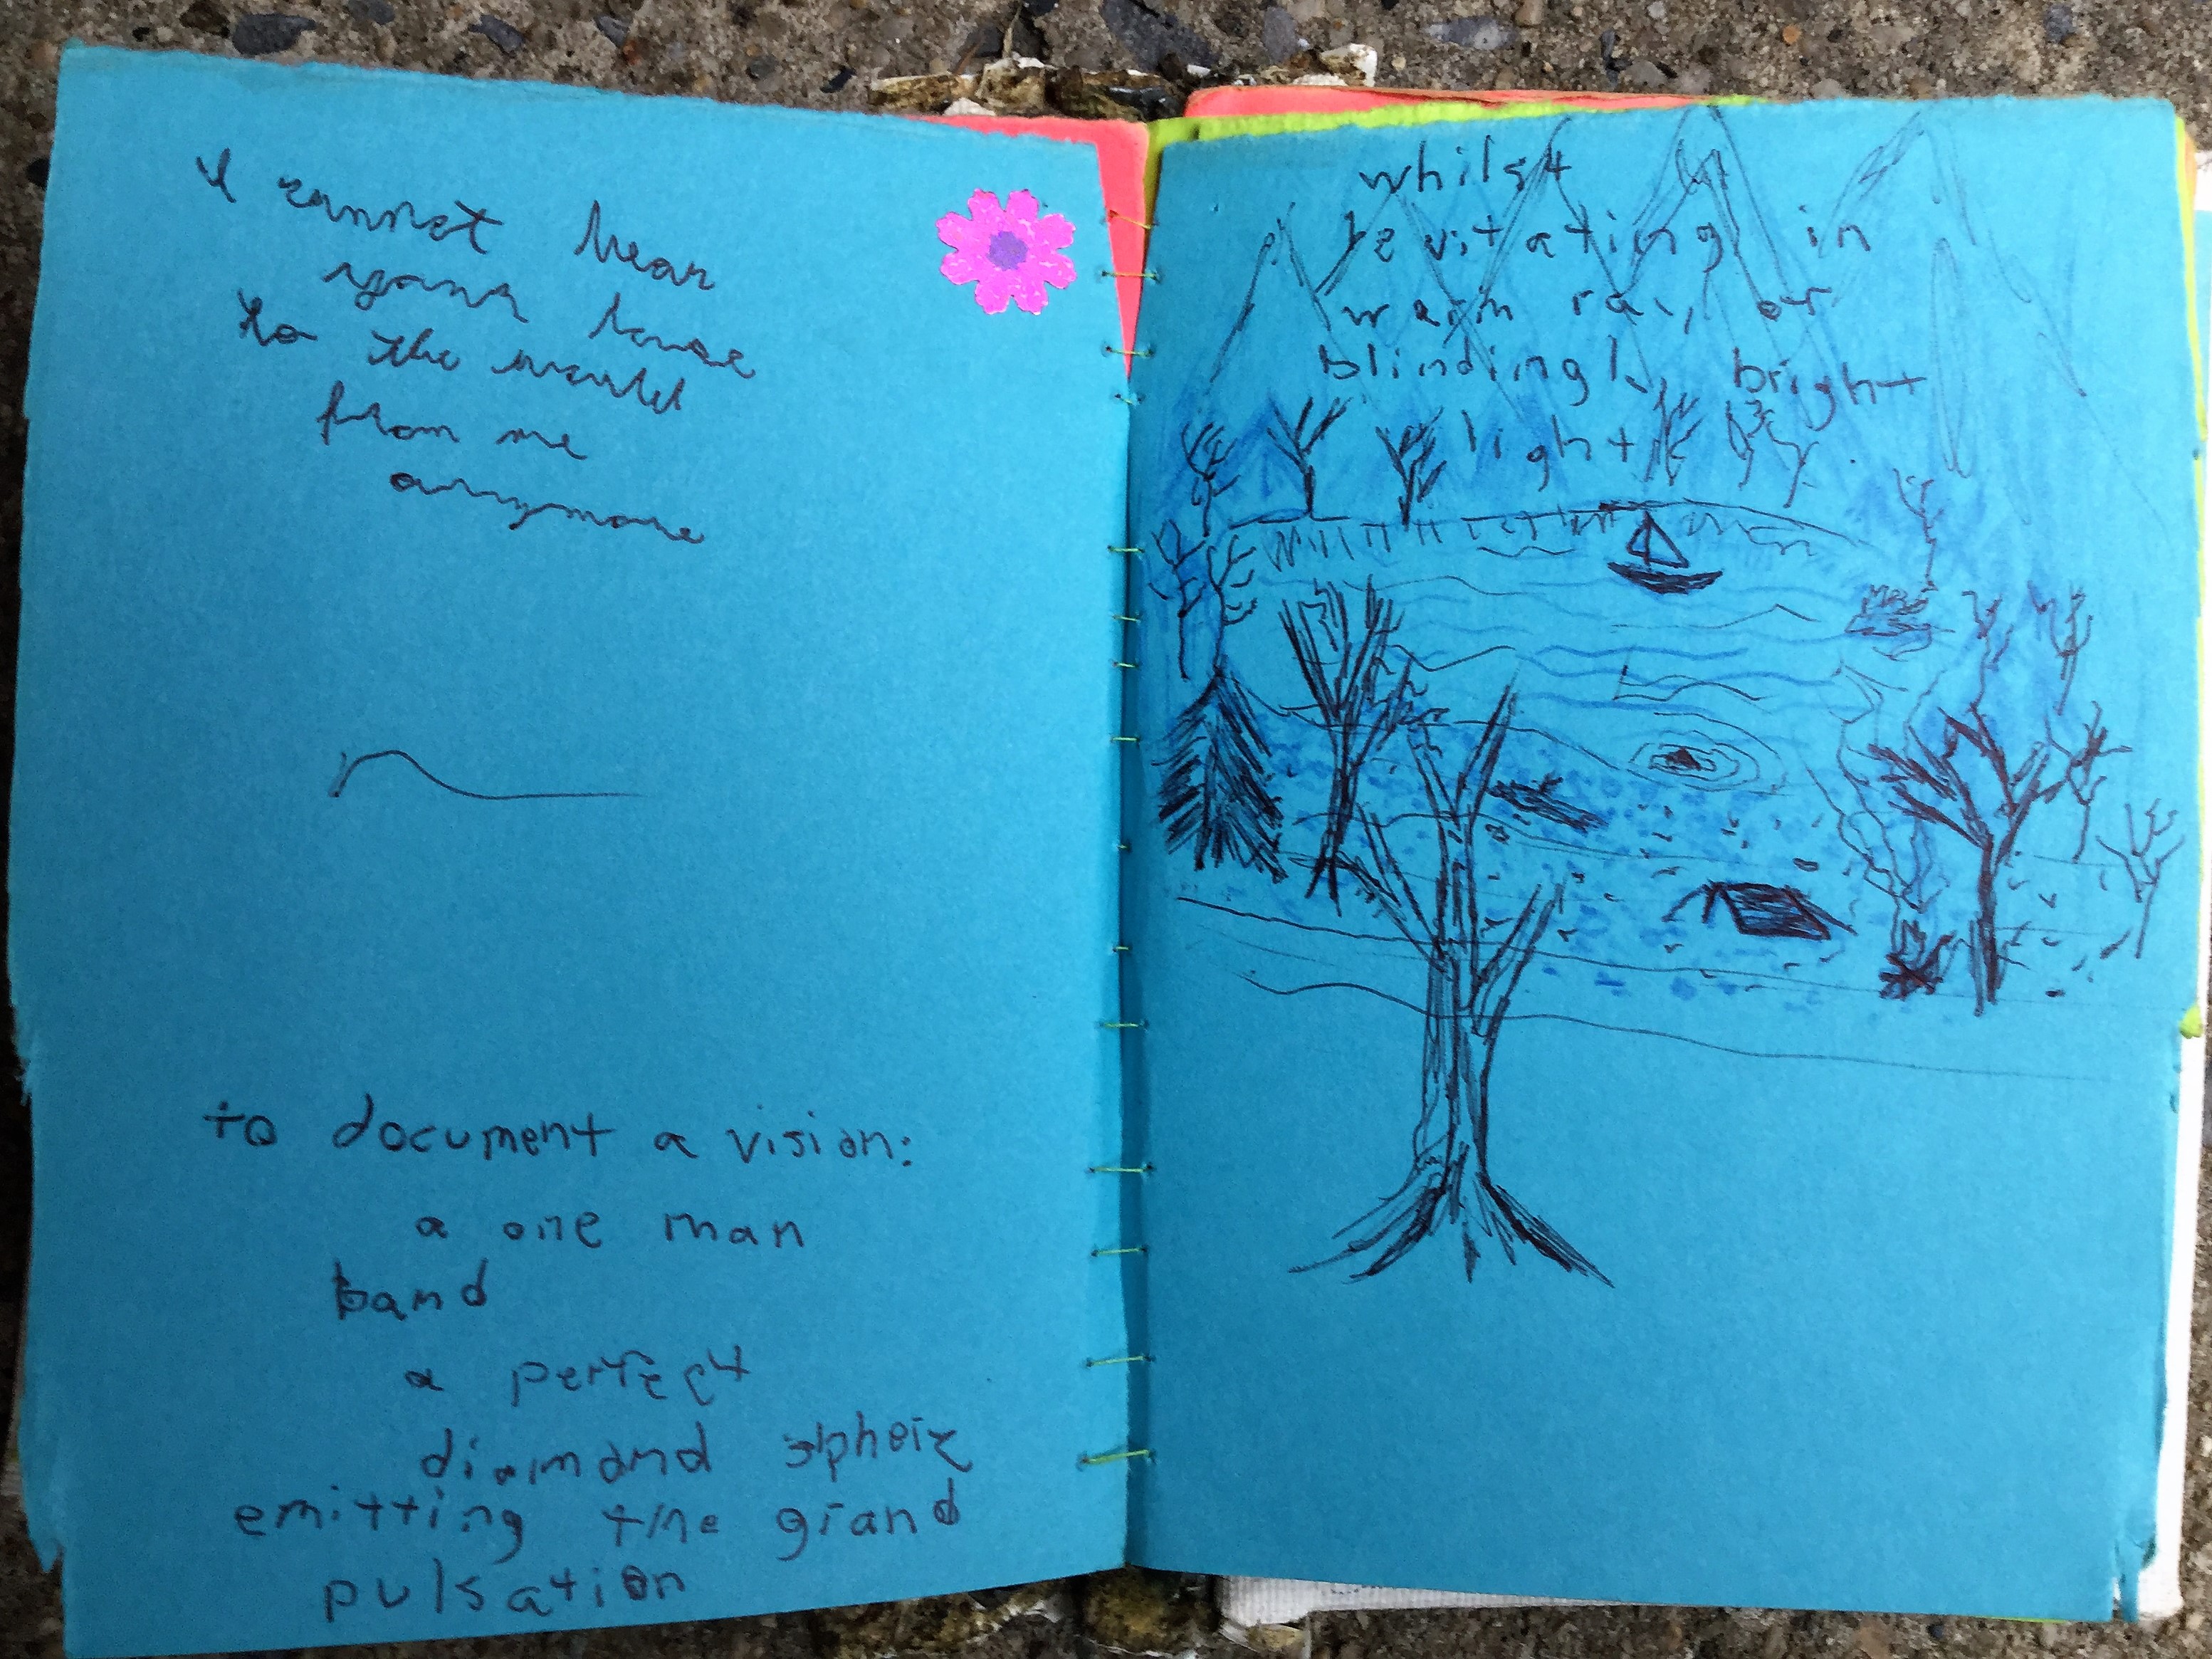 I cannot hear
your
to the world
from me
anymore
to document a vision:
a one man
band
a perfect
diamond sphere
emitting the grand
pulsation
whilst
levitating in
warm ray of
blindingly bright
light